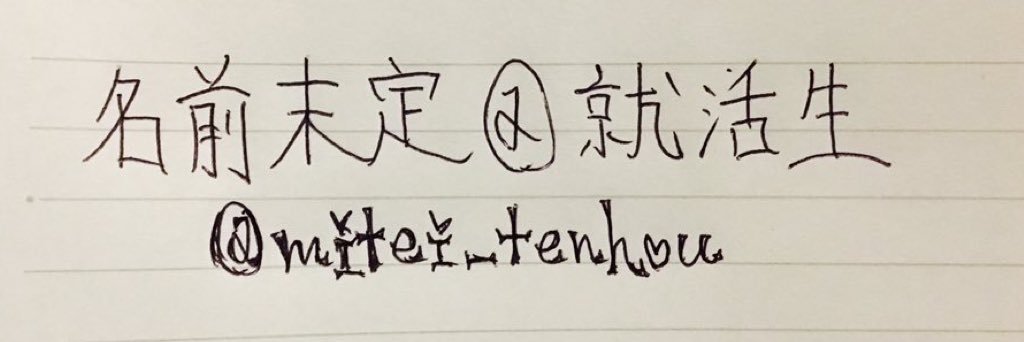 名前未定@就活生
@mitei_tenhou